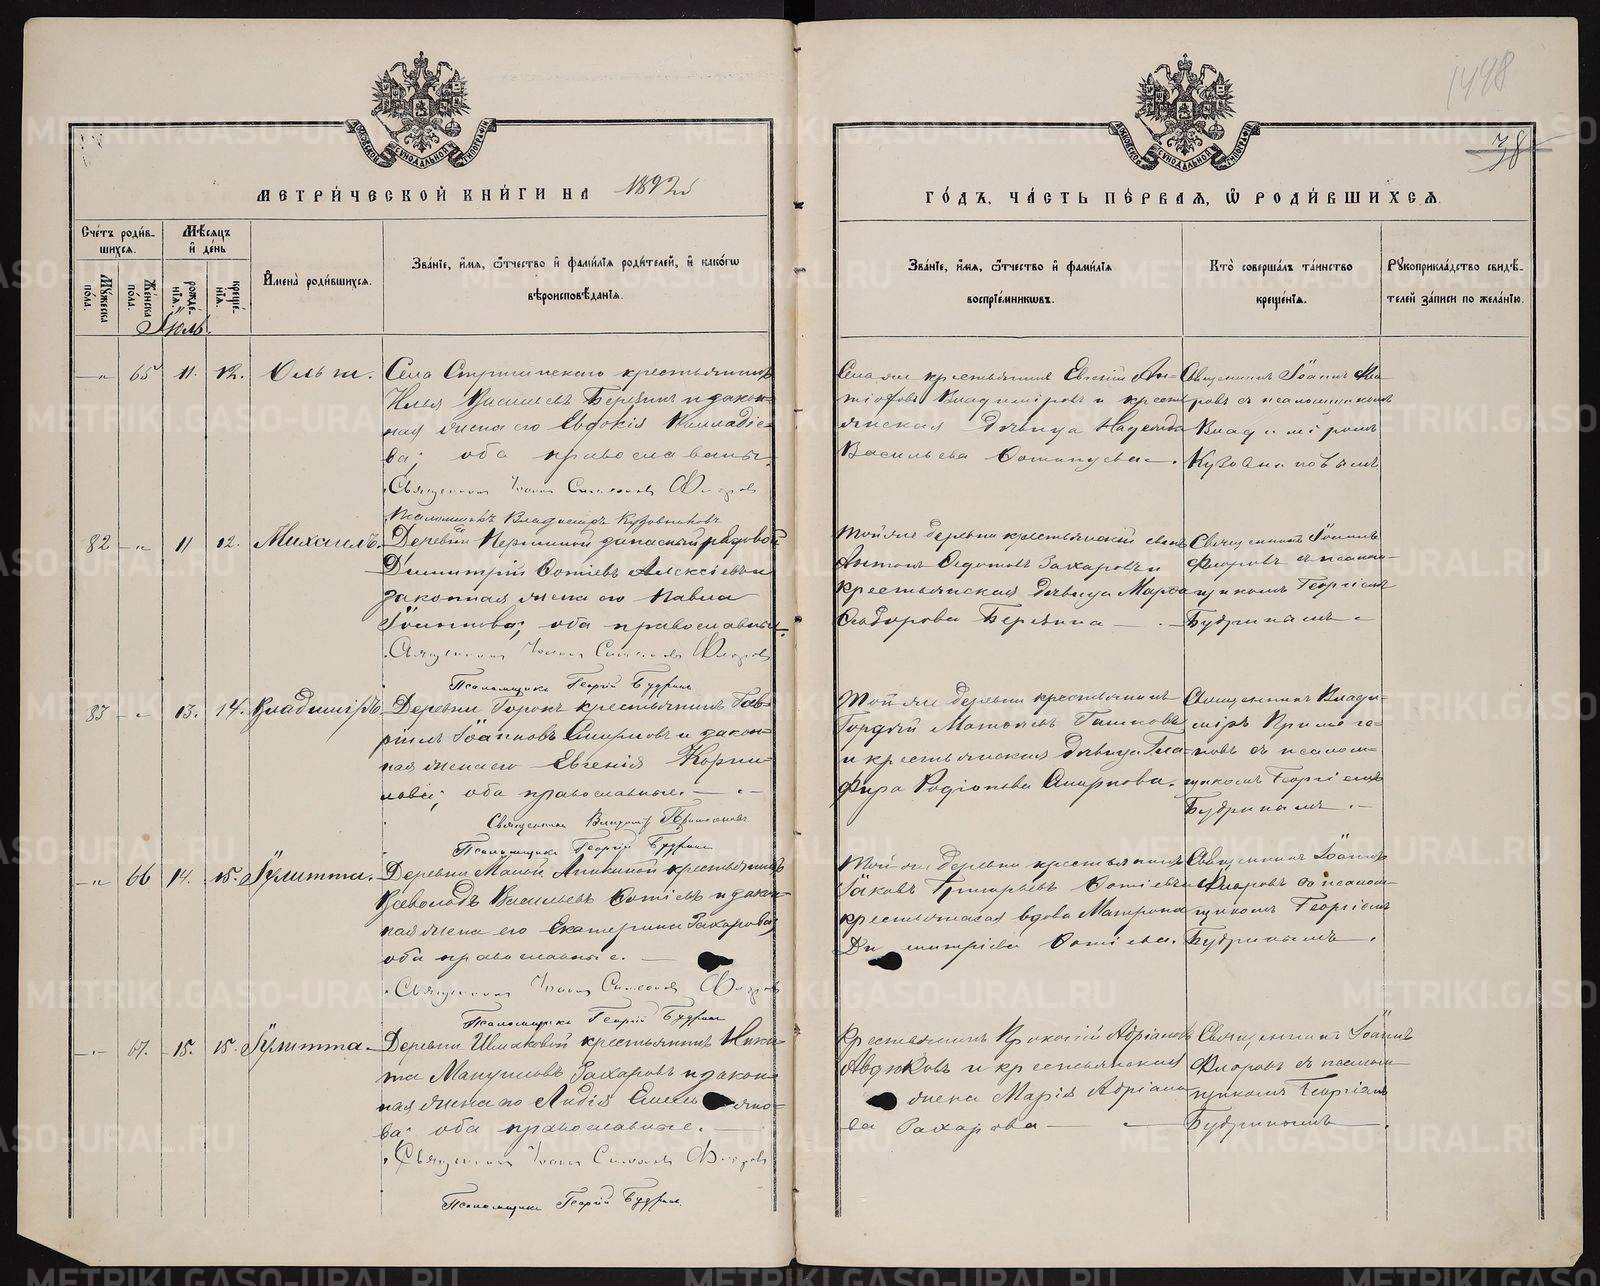 1448
38
МОСКОВСКОЙ СѴНОДАЛЬНОЙ ТИПОГРАФІИ
МОСКОВСКОЙ СѴНОДАЛЬНОЙ ТИПОГРАФІИ
МЕТРИ́ЧЕСКОЙ КНИ́ГИ НА 1892й
ГО́ДЪ, ЧА́СТЬ ПЕ́РВАЯ, Ѡ РОДИ́ВШИХСЯ.
Сче́тъ роди́в-
шихся.
Мѣ́сяцъ
и҆ де́нь
Му́жеска по́ла.
Же́нска по́ла.
рожде́-нїя.
креще́-нїя.
И҆мена̀ роди́вшихся.
Зва́нїе, и҆́мя, ѻ҆́тчество и҆ фами́лїя роди́телей, и҆ како́гѡ
вѣроисповѣ́данїя.
Зва́нїе, и҆́мя, ѻ҆́тчество и҆ фами́лїя
воспрїе́мникѡвъ.
Кто̀ соверша́лъ та́инство
креще́нїя.
Рꙋкоприкла́дство свидѣ́-
телей за́писи по жела́нїю.
Іюль.
—"— 65 11. 12. Ольга. Села Стриганскаго крестьянинъ
Илья Васильевъ Березинъ и закон-
ная жена его Евдокія Геннадіе-
ва; оба православны.
Священникъ Іоаннъ Симеоновъ Флоровъ
Псаломщикъ Владимиръ Кузовниковъ
Села же крестьянинъ Евгеній Ан-
Владиміровъ и кресть
янская дѣвица Надежда
Васильева
Священникъ Іоаннъ Фло
ровъ съ псаломщикомъ
Владиміромъ
Кузовниковымъ
82 —"— 11 12. Михаилъ. Деревни запасный рядовой
Димитрій Фотіевъ Алексіевъ и
законная жена его Павла
Іоаннова; оба православны.
Священникъ Іоаннъ Симеоновъ Флоровъ
Псаломщикъ Георгій Будринъ
Той же деревни крестьянскій сынъ
Антонъ Федотовъ Захаровъ и
крестьянская дѣвица Марѳа
Сидорова Березина — .—
Священникъ Іоаннъ
Флоровъ съ псалом-
щикомъ Георгіемъ
Будринымъ —
83 —"— 13. 14. Владиміръ. Деревни Горокъ крестьянинъ Гав-
ріилъ Іоанновъ Смирновъ и закон-
ная жена его Евгенія Корни-
лова; оба православные. —
Священникъ Владиміръ
Псаломщикъ Георгій Будринъ
Той же деревни крестьянинъ
Гордѣй Матѳеевъ
и крестьянская дѣвица Гла-
фира Родіонова Смирнова.
Священникъ Влади-
міръ
съ псалом-
щикомъ Георгіемъ
Будринымъ. —
—"— 66 14. 15. Іулитта. Деревни Малой Аникиной крестьянинъ
Всеволодъ Васильевъ Фотіевъ и закон-
ная жена его Екатерина Захарова;
оба православные. —
Священникъ Іоаннъ Симеоновъ Флоровъ
Псаломщикъ Георгій Будринъ
Той же деревни крестьянинъ
Іаковъ Григорьевъ Фотіевъ и
крестьянская вдова Матрона
Димитріева Фотіева.
Священникъ Іоаннъ
Флоровъ съ псалом-
щикомъ Георгіемъ
Будринымъ.
—"— 67. 15. 15. Іулитта. Деревни Ившаковой крестьянинъ Ники-
та Мануиловъ Захаровъ и закон-
ная жена его Лидія Емельянo-
ва; оба православные. —
Священникъ Іоаннъ Симеоновъ Флоровъ
Псаломщикъ Георгій Будринъ.
Крестьянинъ Прокопій Адріановъ
Авдюковъ и крестьянская
жена Марія Адріано-
ва Захарова —
Священникъ Іоаннъ
Флоровъ съ псалом-
щикомъ Георгіемъ
Будринымъ —.
METRIKI.GASO-URAL.RU